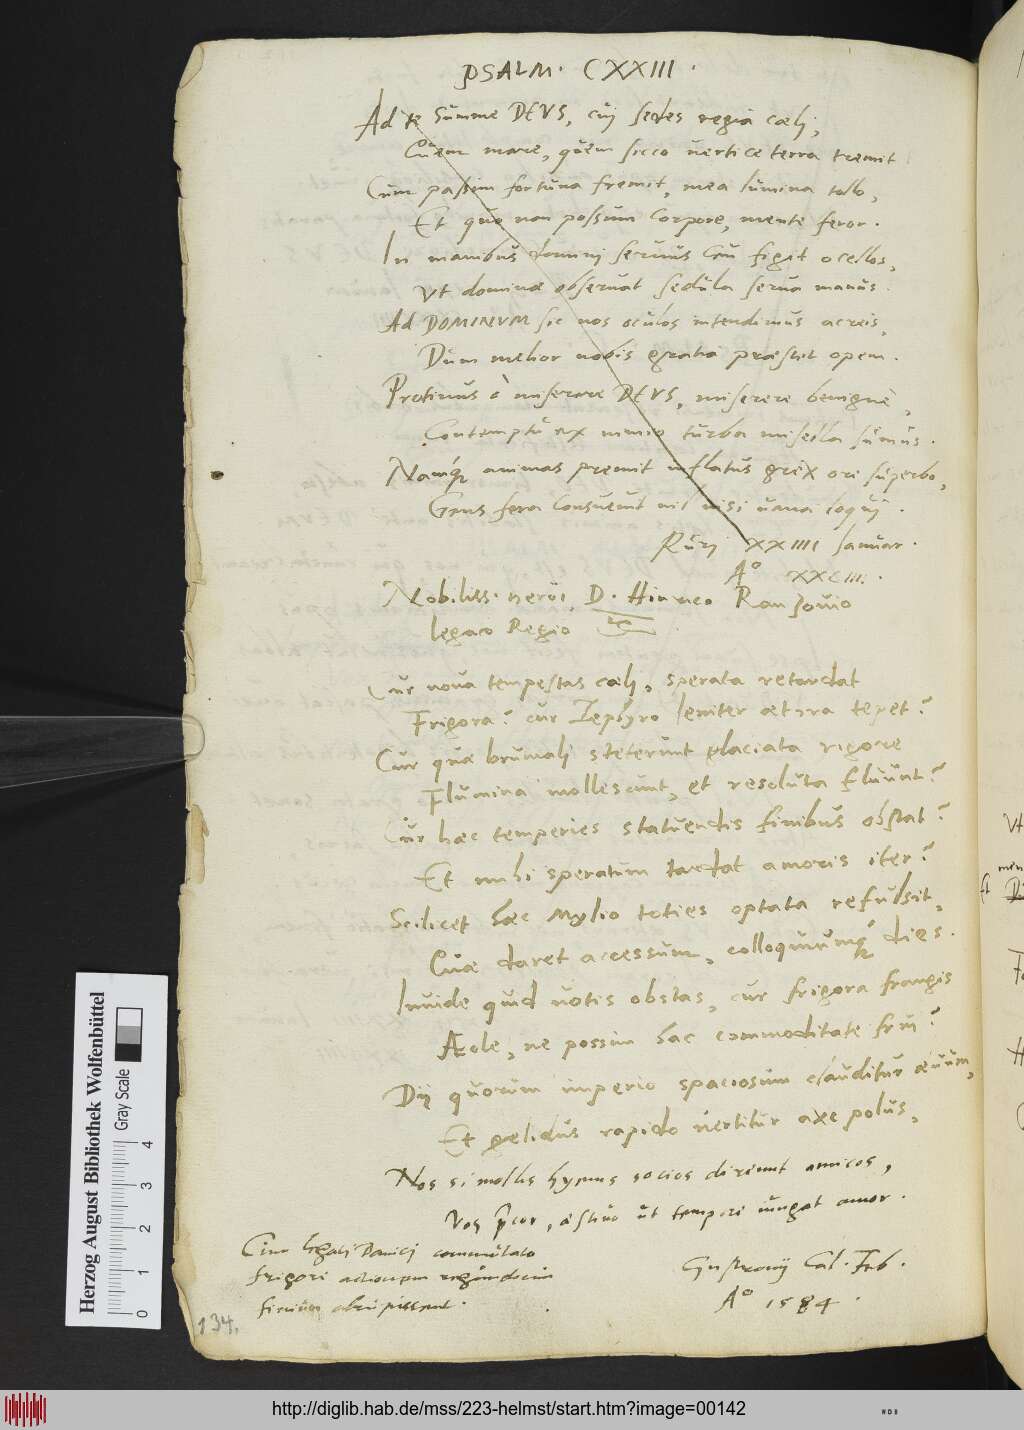 PSALM. CXXIII.
Ad te Summe DEVS, cui sedes regia cæli,
Quem mare, quem sicco vertice terra tremit
Cum passim fortuna fremit, mea lumina tollo,
Et quo non possum corpore, mente feror.
In manibus domini servus ceu figit ocellos,
Vt dominæ observat sedula serva manus.
Ad DOMINVM sic nos oculos intendimus acreis,
Dum melior nobis gratia præstet opem.
Protinus ò miserere DEVS, miserere benignè,
Contemptu ex nimio turba misella sumus.
Namq; animas premit inflatus grex ore superbo,
Gens fera consuevit nil nisi vana loqui.
Ruri XXIIII Ianuar.
Aº XXCIII.
Nobiliss. heroi D. Hinrico Ranzouio
legato Regio
Cur nova tempestas cæli, sperata retardat
Frigora? cur Zephyro leniter æthra tepet?
Cur quæ brumali steterunt glaciata rigore
Flumina mollescunt, et resoluta fluunt?
Cur hæc temperies statuendis finibus obstat?
Et mihi speratum tardat amoris iter?
Scilicet hæc Mylio toties optata refulsit,
Quæ daret accessum, colloquiumq; dies.
Invide quid votis obstas, cur frigora frangis
Æole, ne possim hac commoditate frui?
Dij quorum imperio spaciosum clauditur ævum,
Et gelidus rapido vertitur axe polus,
Nos si mollis hyems socios dirimit amicos,
Vos p̄cor, æstivo ut tempore iungat amor.
Cum legati Danici commutato
frigori actionem regundorum
finium
Gustrovij Cal. Feb.
Aº 1584.
134.
Herzog August Bibliothek Wolfenbüttel
Gray Scale
0 1 2 3 4
http://diglib.hab.de/mss/223-helmst/start.htm?image=00142